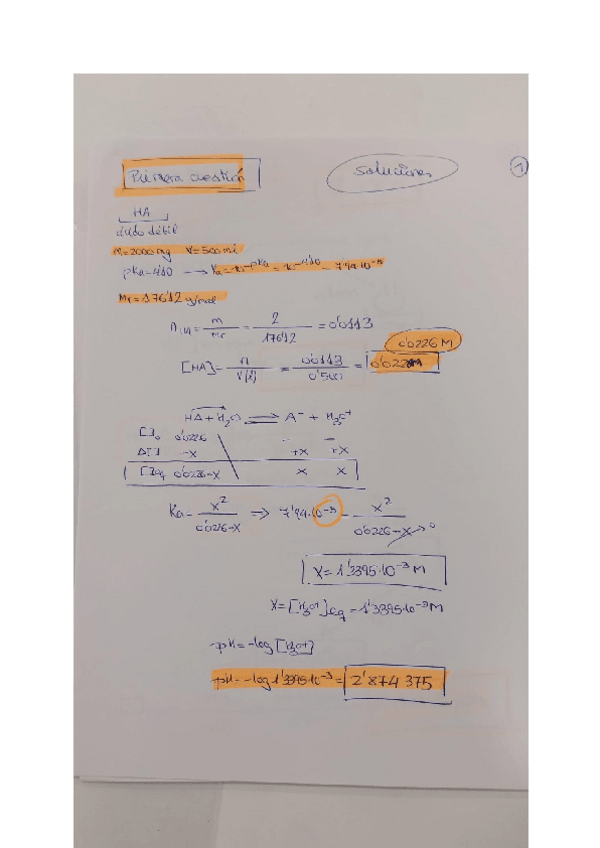 Primera cuestión
Soluciones
1
HA
ácido débil
m=2000 mg V=500 ml
pKa=4'10 → Ka=10^-pKa = 10^-4'10 = 7'94·10^-5
Mr=176'12 g/mol
= m/Mr = 2/176'12 = 0'0113
0'0226 M
[HA]= n/V(l) = 0'0113/0'500 =
HA+H2O ⇌ A⁻ + H3O⁺
[ ]o 0'0226 - -
Δ[ ] -x +x +x
[ ]eq 0'0226-x x x
Ka= x²/0'0226-x ⇒ 7'94·10^-5 = x²/0'0226-x → 0
x=1'3395·10^-3 M
x=[H3O+]eq =1'3395·10^-3 M
pH=-log [H3O+]
pH=-log 1'3395·10^-3 = 2'874 375